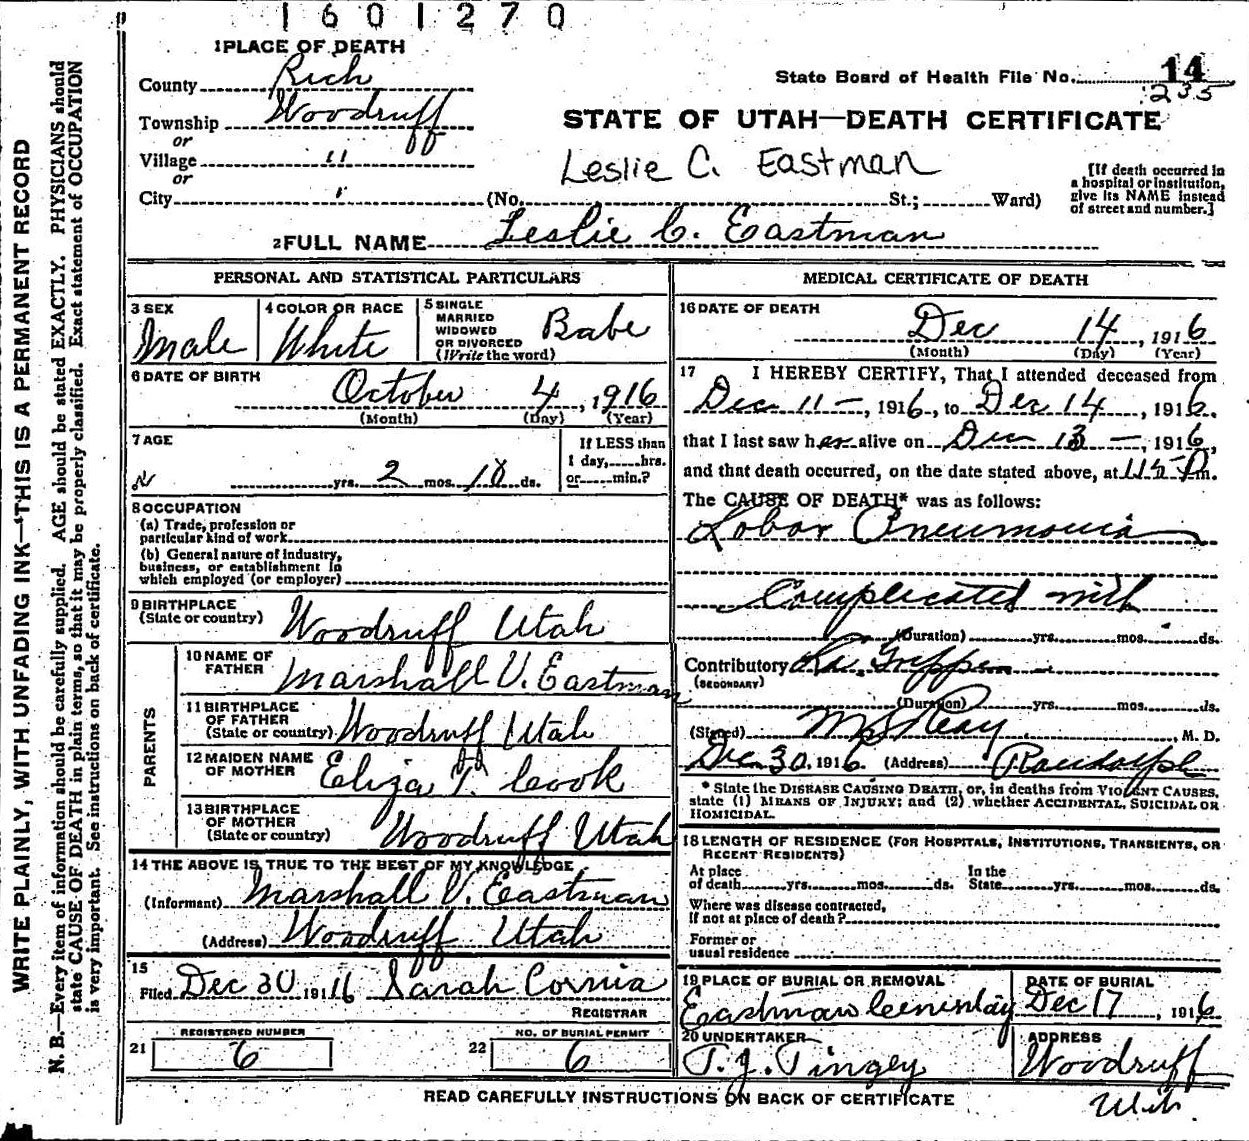 1601270
1 PLACE OF DEATH
County Rich
Township Woodruff
or
Village "
or
City "
(No. St.; Ward)
State Board of Health File No. 14
235
STATE OF UTAH—DEATH CERTIFICATE
Leslie C. Eastman
[If death occurred in
a hospital or institution,
give its NAME instead
of street and number.]
2 FULL NAME Leslie C. Eastman
WRITE PLAINLY, WITH UNFADING INK—THIS IS A PERMANENT RECORD
N. B.—Every item of information should be carefully supplied. AGE should be stated EXACTLY. PHYSICIANS should
state CAUSE OF DEATH in plain terms, so that it may be properly classified. Exact statement of OCCUPATION
is very important. See instructions on back of certificate.
PERSONAL AND STATISTICAL PARTICULARS
3 SEX
Male
4 COLOR OR RACE
White
5 SINGLE
MARRIED
WIDOWED
OR DIVORCED
(Write the word)
Babe
6 DATE OF BIRTH
October 4, 1916
(Month) (Day) (Year)
7 AGE
yrs. 2 mos. 10 ds.
If LESS than
1 day, hrs.
or min.?
8 OCCUPATION
(a) Trade, profession or
particular kind of work
(b) General nature of industry,
business, or establishment in
which employed (or employer)
9 BIRTHPLACE
(State or country)
Woodruff Utah
PARENTS
10 NAME OF
FATHER
Marshall V. Eastman
11 BIRTHPLACE
OF FATHER
(State or country)
Woodruff Utah
12 MAIDEN NAME
OF MOTHER
Eliza T. Cook
13 BIRTHPLACE
OF MOTHER
(State or country)
Woodruff Utah
14 THE ABOVE IS TRUE TO THE BEST OF MY KNOWLEDGE
(Informant) Marshall V. Eastman
(Address) Woodruff Utah
15
Filed Dec 30 1916 Sarah Cornia
REGISTRAR
REGISTERED NUMBER
21 6
NO. OF BURIAL PERMIT
22 6
MEDICAL CERTIFICATE OF DEATH
16 DATE OF DEATH
Dec 14, 1916
(Month) (Day) (Year)
17 I HEREBY CERTIFY, That I attended deceased from
Dec 11—, 1916, to Dec 14, 1916.
that I last saw her alive on Dec 13—, 1916,
and that death occurred, on the date stated above, at m.
The CAUSE OF DEATH* was as follows:
Lobar Pneumonia
Complicated with
(Duration) yrs. mos. ds.
Contributory La Grippe
(SECONDARY)
(Duration) yrs. mos. ds.
(Signed) , M. D.
Dec 30, 1916. (Address) Randolph
* State the DISEASE CAUSING DEATH, or, in deaths from VIOLENT CAUSES,
state (1) MEANS OF INJURY; and (2) whether ACCIDENTAL, SUICIDAL OR
HOMICIDAL.
18 LENGTH OF RESIDENCE (FOR HOSPITALS, INSTITUTIONS, TRANSIENTS, OR
RECENT RESIDENTS)
At place In the
of death yrs. mos. ds. State yrs. mos. ds.
Where was disease contracted,
if not at place of death?
Former or
usual residence
19 PLACE OF BURIAL OR REMOVAL
Eastman
DATE OF BURIAL
Dec 17, 1916
20 UNDERTAKER
T. J. Tingey
ADDRESS
Woodruff
Utah
READ CAREFULLY INSTRUCTIONS ON BACK OF CERTIFICATE